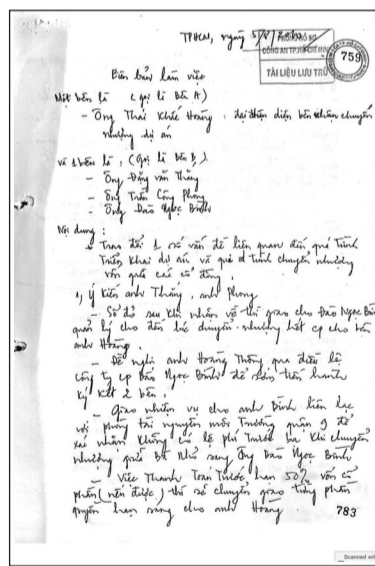 TPHCM, ngày 5/8/
PHÒNG HỒ SƠ
CÔNG AN TP.HỒ CHÍ MINH
TÀI LIỆU LƯU TRỮ
759
Biên bản làm việc
Một bên là (gọi là Bên A)
- Ông Thái Khắc Hoàng : đại diện bên nhận chuyển
nhượng dự án
và 1 bên là, (Gọi là Bên B)
- Ông Đặng Văn Thắng
- Ông Trần Công Phong
- Ông Đào Ngọc Bình
Nội dung :
- Trao đổi 1 số vấn đề liên quan đến quá trình
triển khai dự án và quá trình chuyển nhượng
vốn giữa các cổ đông.
1, ý kiến anh Thắng, anh Phong
- Sổ đỏ sau khi nhận về thì giao cho Đào Ngọc Bình
quản lý cho đến lúc chuyển nhượng hết cp cho bên
anh Hoàng.
- Đề nghị anh Hoàng thông qua điều lệ
công ty cp Đào Ngọc Bình để sớm tiến hành
ký kết 2 bên.
- Giao nhiệm vụ cho anh Bình liên lạc
với phòng tài nguyên môi trường quận 9 để
xác nhận không có lệ phí trước bạ khi chuyển
nhượng giữa Bà Nhỏ sang Ông Đào Ngọc Bình
- Việc thanh toán trước hạn 50% vốn cổ
phần (nếu được) thì sẽ chuyển giao từng phần
quyền hạn sang cho anh Hoàng
783
Scanned wit